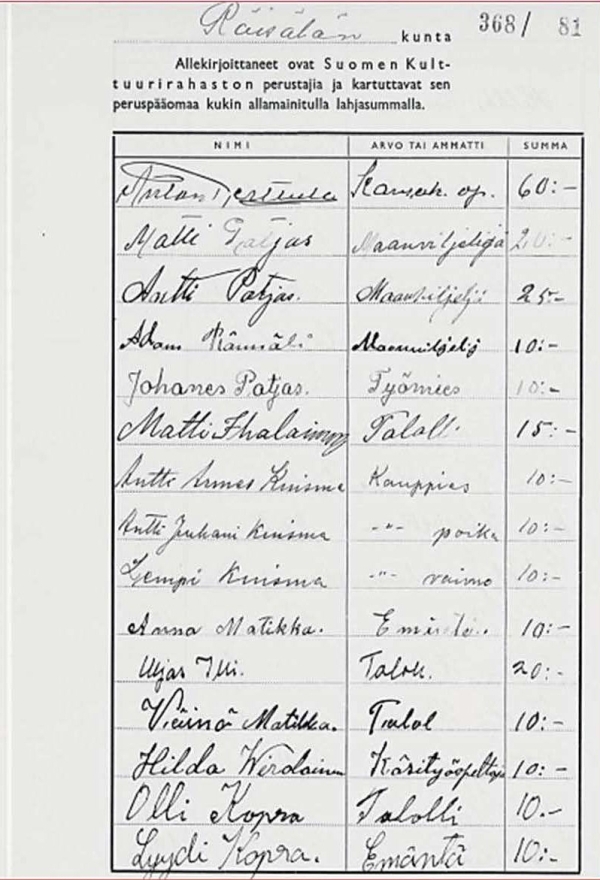 Räisälän kunta 368/ 81
Allekirjoittaneet ovat Suomen Kult-
tuurirahaston perustajia ja kartuttavat sen
peruspääomaa kukin allamainitulla lahjasummalla.
NIMI ARVO TAI AMMATTI SUMMA
Kansak. op. 60:-
Matti Patjas Maanviljelijä 20:-
Antti Patjas. Maanviljelijä 25:-
Adam Maanviljelijä 10:-
Johanes Patjas. Työmies 10:-
Matti Ihalainen Talolli 15:-
Antti Armas Kuisma Kauppias 10:-
Antti Juhani Kuisma -"- poika 10:-
Lempi Kuisma -"- vaimo 10:-
Anna Matikka. Emäntä. 10:-
Talok. 20:-
Väinö Matikka. Talol 10:-
Hilda Wirolainen Käsityöopettaja 10:-
Olli Kopra Talolli 10.-
Lyydi Kopra. Emäntä 10:-